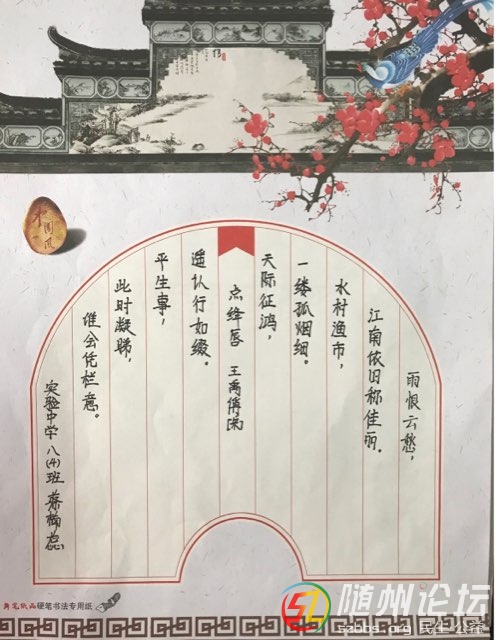 雨恨云愁，
江南依旧称佳丽。
水村渔市，
一缕孤烟细。
天际征鸿，
点绛唇 王禹偁
遥认行如缀。
平生事，
此时凝睇，
谁会凭栏意。
实验中学 八(4)班
中国风
硬笔书法专用纸
随州论坛